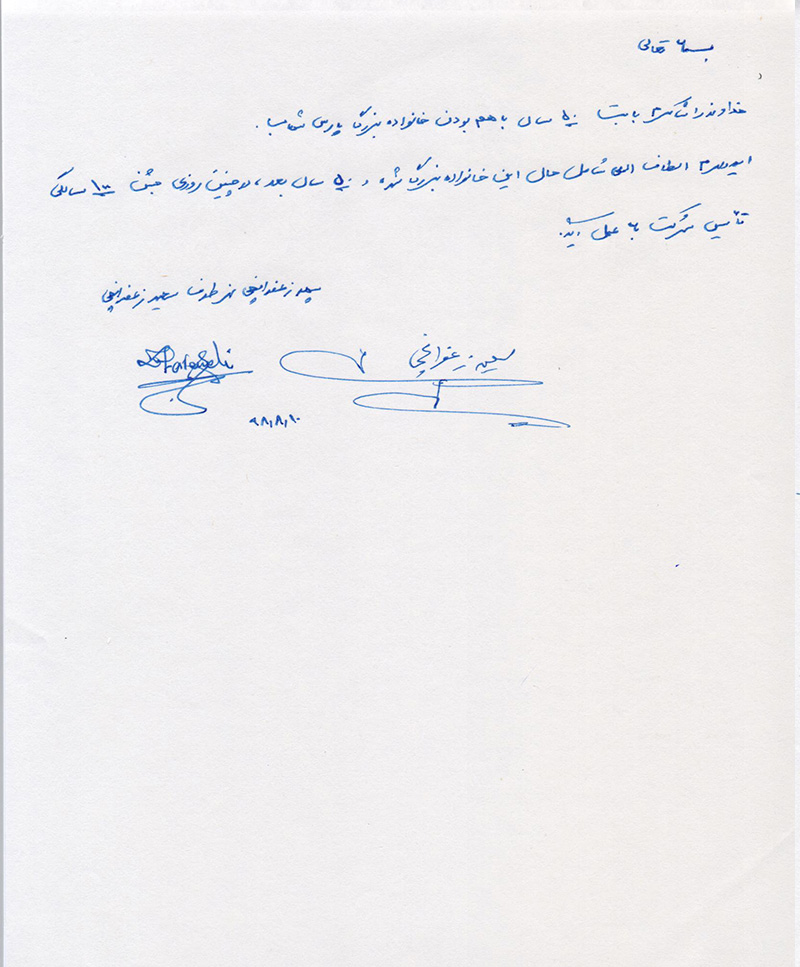 بسمه تعالی
خداوند را شاکریم بابت ۵۰ سال با هم بودن خانواده بزرگ پارس شعاب.
امیدوارم الطاف الهی شامل حال این خانواده بزرگ شده و ۵۰ سال بعد، در چنین روزی جشن ۱۰۰ سالگی
تأسیس شرکت به عمل آید.
سعید زعفرانچی از طرف سعید زعفرانچی
سعید زعفرانچی
۹۸/۸/۱۰